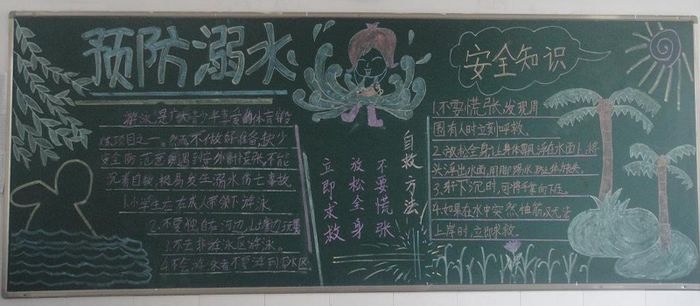 预防溺水
游泳是广大青少年喜爱的体育锻
炼项目之一。然而不做好准备、缺少
安全防范意识,遇到意外时慌张、不能
沉着自救,极易发生溺水伤亡事故
1.小学生应在成人带领下游泳
2.不要独自在河边、山塘边玩耍
3.不去非游泳区游泳。
4.不会游泳者不要游到深水区
自救方法
不要慌张
放松全身
立即求救
安全知识
1.不要慌张,发现周
围有人时立刻呼救。
2.放松全身,让身体飘浮在水面上,将
头浮出水面,用脚踢水
3.身体下沉时,可将手掌向下压。
4.如果在水中突然抽筋,又无法
上岸时,立即求救。